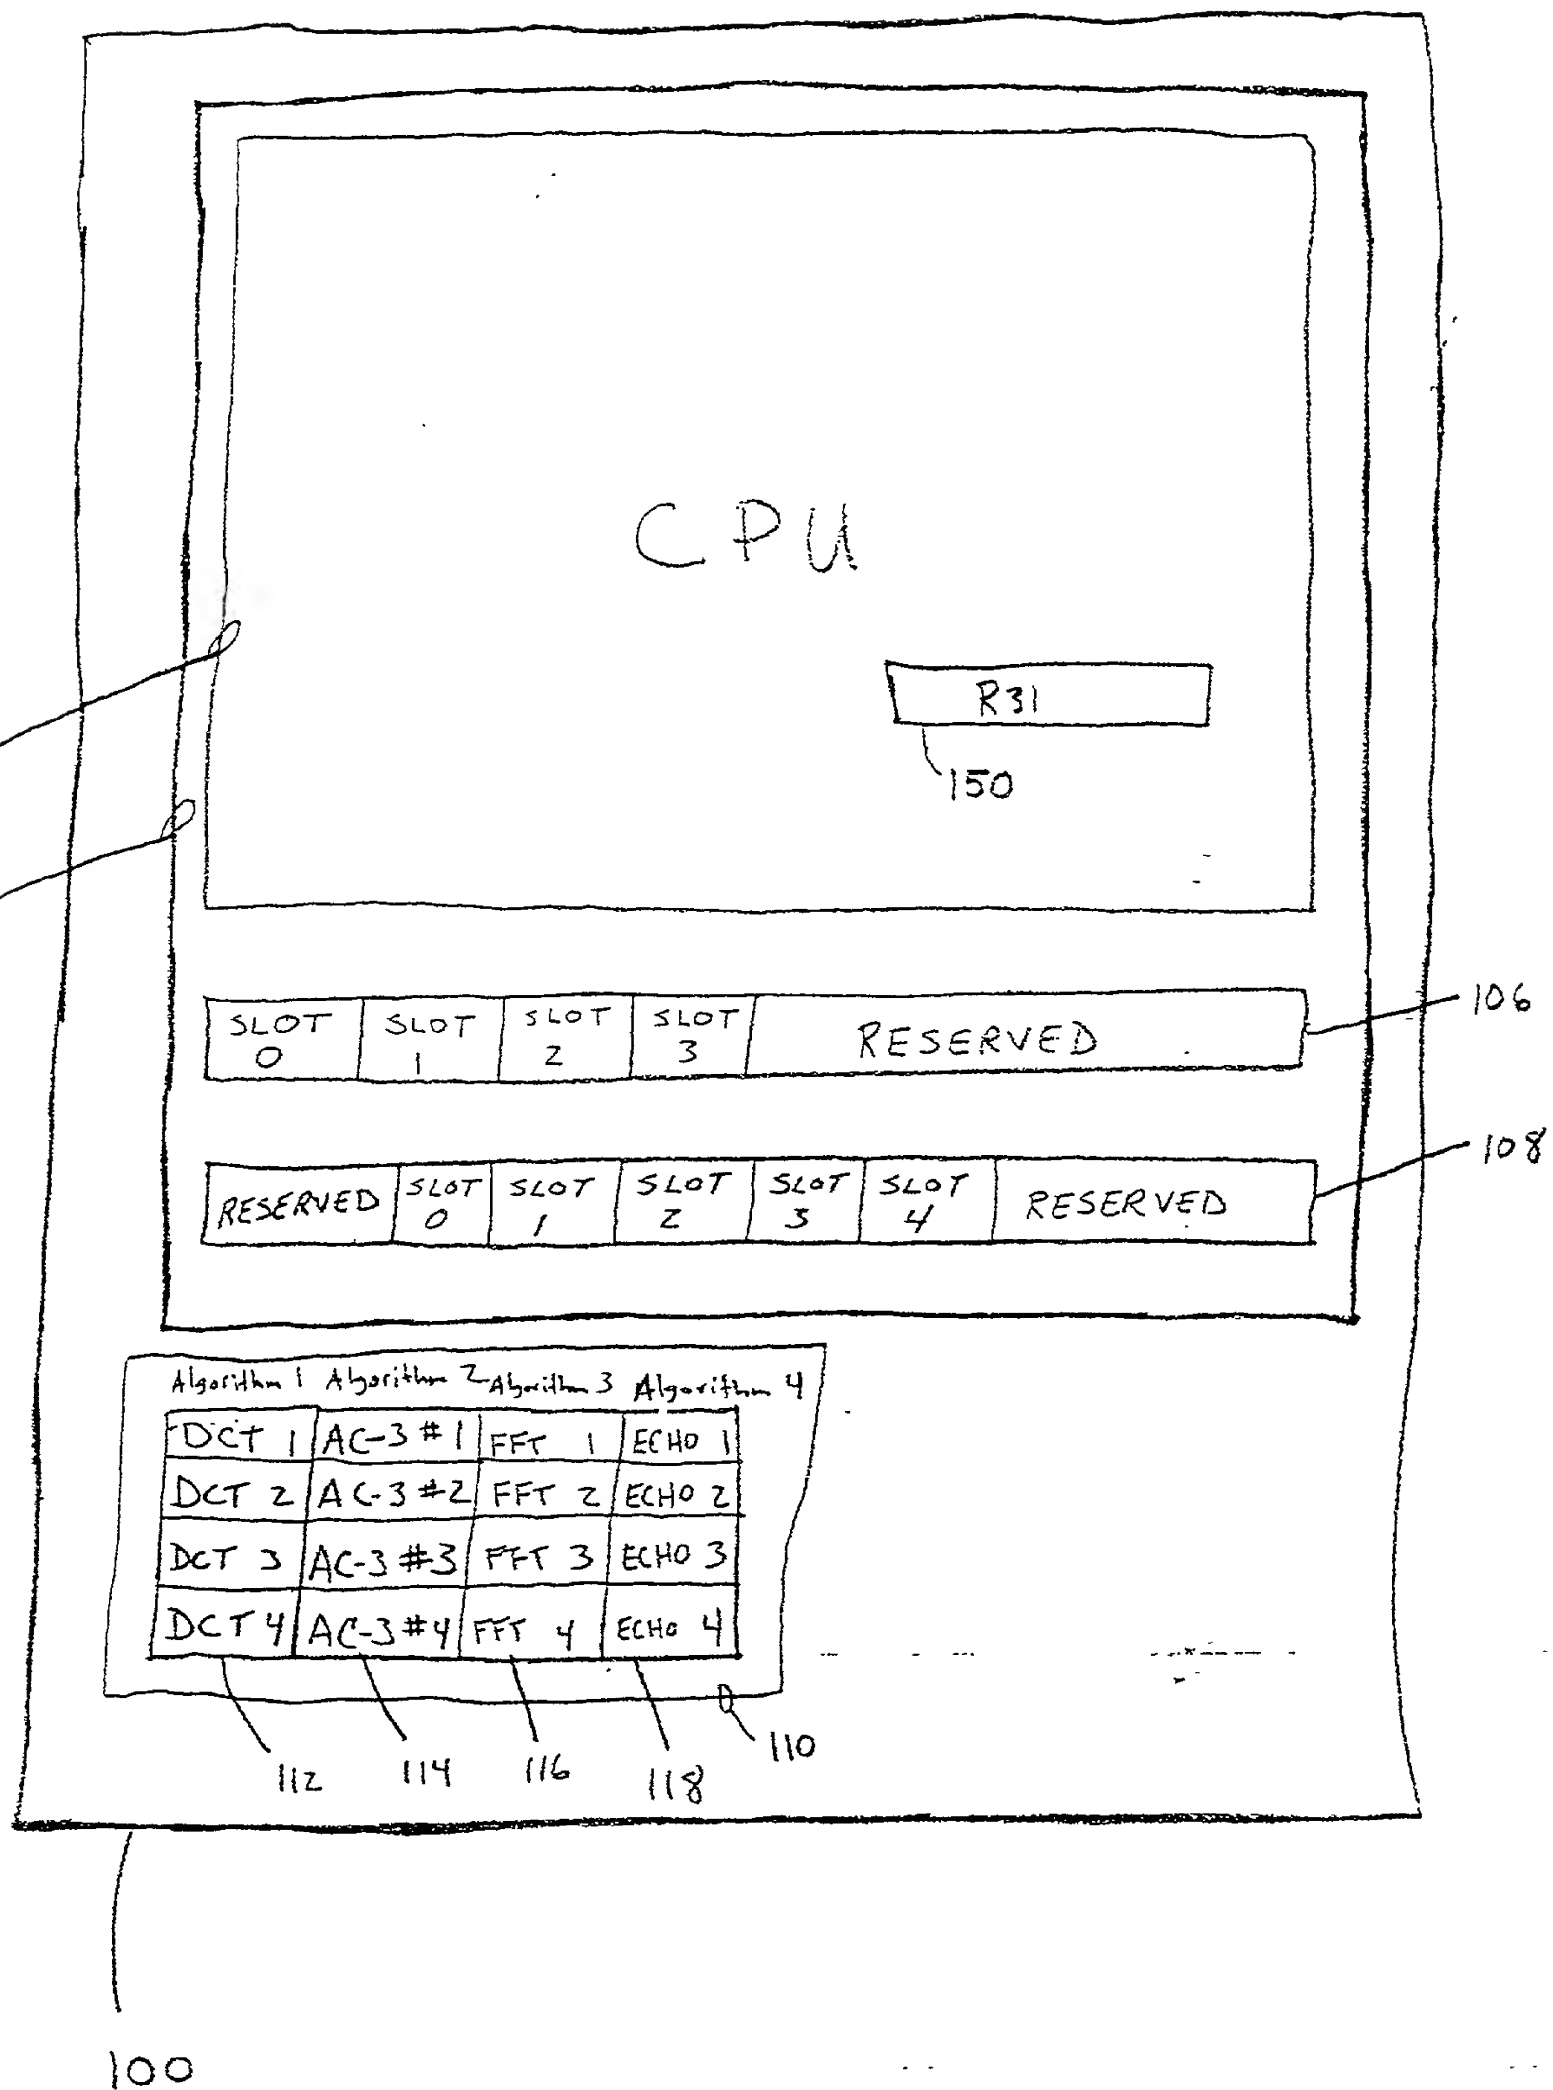 CPU
R31
150
SLOT 0 SLOT 1 SLOT 2 SLOT 3 RESERVED
106
RESERVED SLOT 0 SLOT 1 SLOT 2 SLOT 3 SLOT 4 RESERVED
108
Algorithm 1 Algorithm 2 Algorithm 3 Algorithm 4
DCT 1 AC-3 #1 FFT 1 ECHO 1
DCT 2 AC-3 #2 FFT 2 ECHO 2
DCT 3 AC-3 #3 FFT 3 ECHO 3
DCT 4 AC-3 #4 FFT 4 ECHO 4
110
112 114 116 118
100